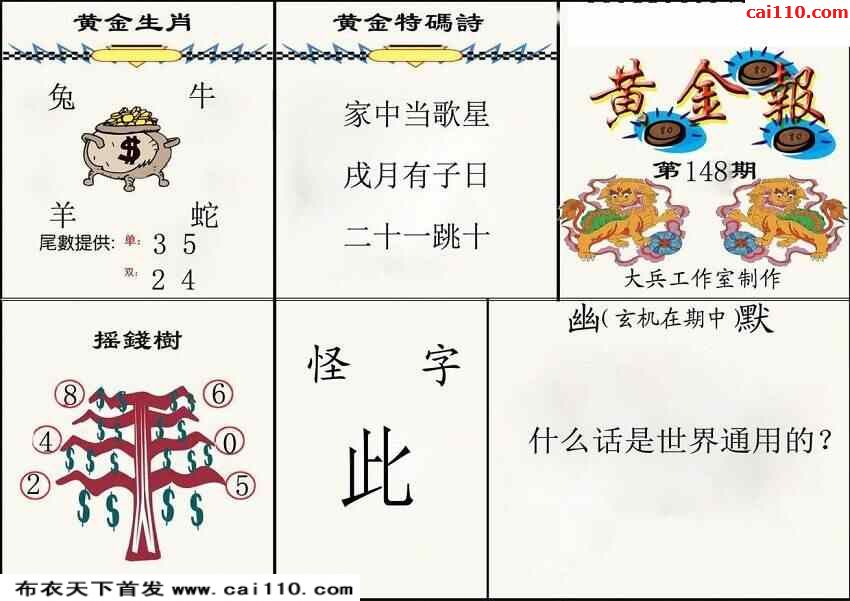 cai110.com
黄金生肖
兔 牛
羊 蛇
尾數提供: 单: 3 5
双: 2 4
黄金特碼詩
家中当歌星
戌月有子日
二十一跳十
黄金報
第148期
大兵工作室制作
摇錢樹
8 6
4 0
2 5
怪字
此
幽(玄机在期中)默
什么话是世界通用的?
布衣天下首发 www.cai110.com